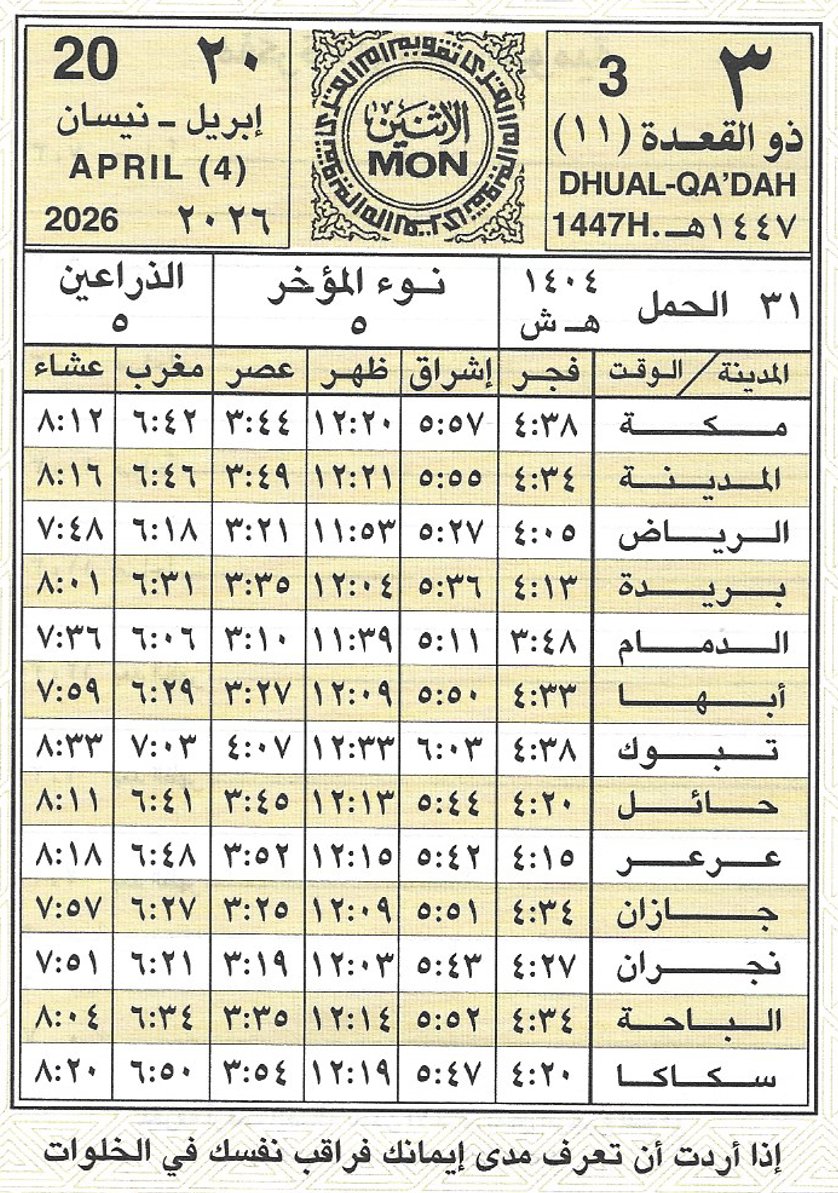 ٣ 3
ذو القعدة (١١)
DHUAL-QA'DAH
1447H. ١٤٤٧هـ
الاثنين
MON
20 ٢٠
إبريل - نيسان
APRIL (4)
2026 ٢٠٢٦
٣١ الحمل ١٤٠٤ هـ ش
نوء المؤخر ٥
الذراعين ٥
المدينة / الوقت فجر إشراق ظهر عصر مغرب عشاء
مكة ٤:٣٨ ٥:٥٧ ١٢:٢٠ ٣:٤٤ ٦:٤٢ ٨:١٢
المدينة ٤:٣٤ ٥:٥٥ ١٢:٢١ ٣:٤٩ ٦:٤٦ ٨:١٦
الرياض ٤:٠٥ ٥:٢٧ ١١:٥٣ ٣:٢١ ٦:١٨ ٧:٤٨
بريدة ٤:١٣ ٥:٣٦ ١٢:٠٤ ٣:٣٥ ٦:٣١ ٨:٠١
الدمام ٣:٤٨ ٥:١١ ١١:٣٩ ٣:١٠ ٦:٠٦ ٧:٣٦
أبها ٤:٣٣ ٥:٥٠ ١٢:٠٩ ٣:٢٧ ٦:٢٩ ٧:٥٩
تبوك ٤:٣٨ ٦:٠٣ ١٢:٣٣ ٤:٠٧ ٧:٠٣ ٨:٣٣
حائل ٤:٢٠ ٥:٤٤ ١٢:١٣ ٣:٤٥ ٦:٤١ ٨:١١
عرعر ٤:١٥ ٥:٤٢ ١٢:١٥ ٣:٥٢ ٦:٤٨ ٨:١٨
جازان ٤:٣٤ ٥:٥١ ١٢:٠٩ ٣:٢٥ ٦:٢٧ ٧:٥٧
نجران ٤:٢٧ ٥:٤٣ ١٢:٠٣ ٣:١٩ ٦:٢١ ٧:٥١
الباحة ٤:٣٤ ٥:٥٢ ١٢:١٤ ٣:٣٥ ٦:٣٤ ٨:٠٤
سكاكا ٤:٢٠ ٥:٤٧ ١٢:١٩ ٣:٥٤ ٦:٥٠ ٨:٢٠
إذا أردت أن تعرف مدى إيمانك فراقب نفسك في الخلوات